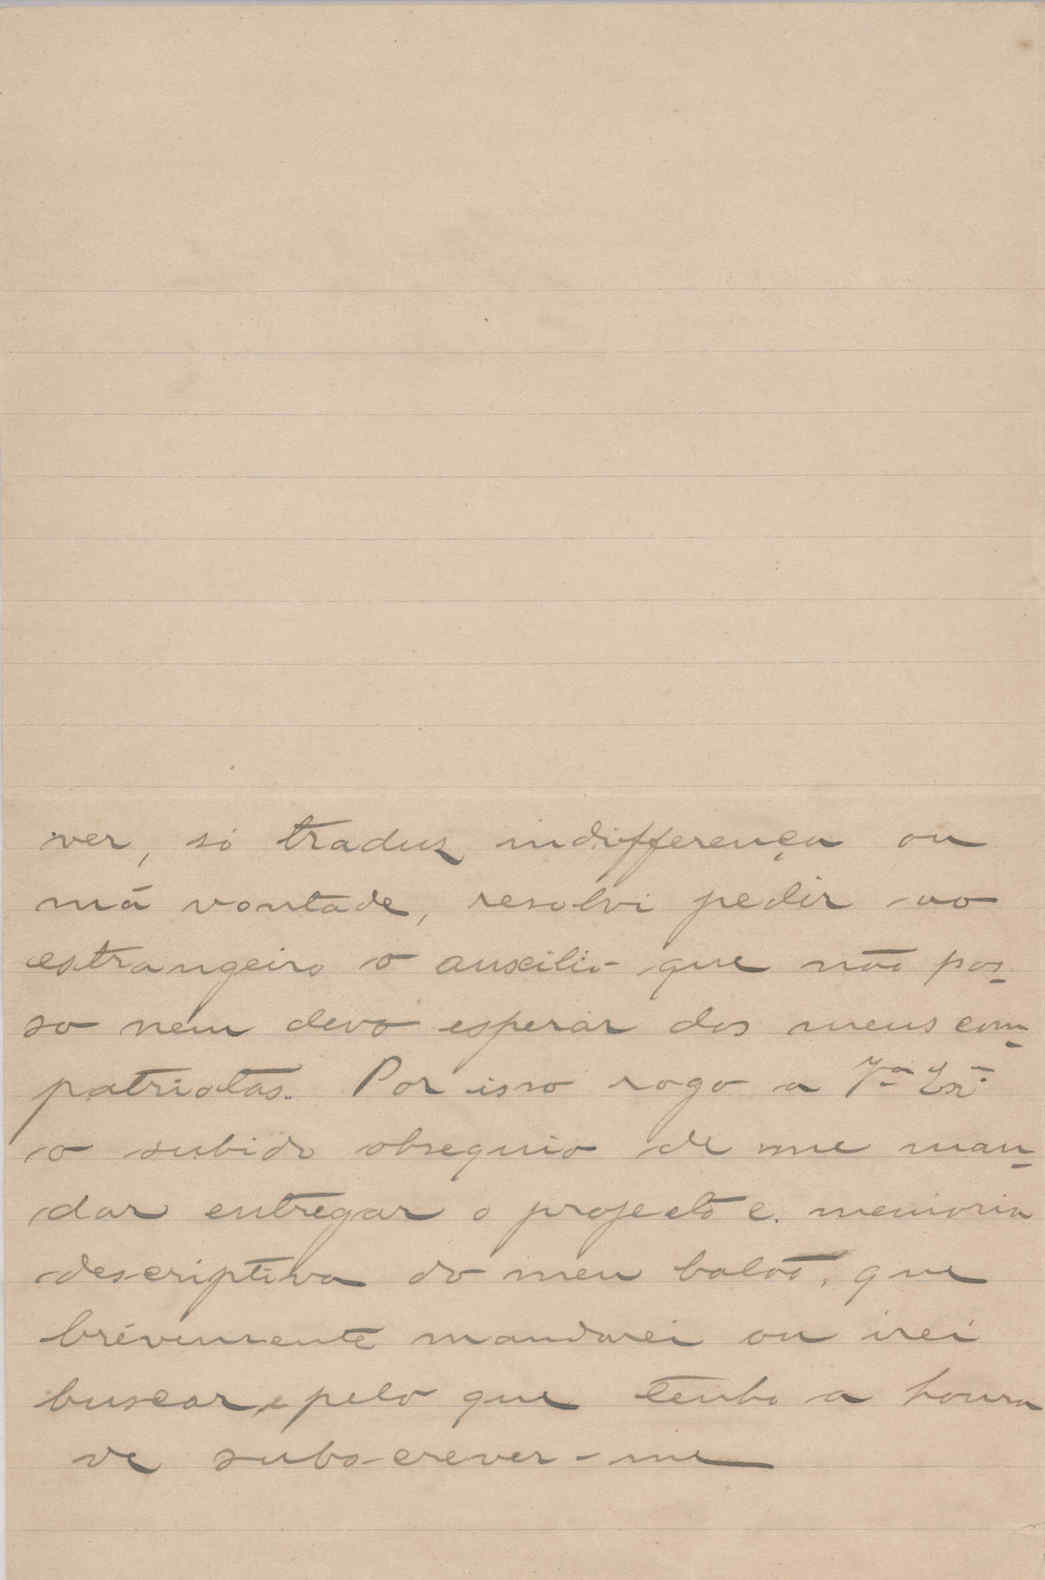 ver, só traduz indifferença ou
má vontade, resolvi pedir ao
estrangeiro o auxilio que não pos-
so nem devo esperar dos meus com-
patriotas. Por isso rogo a Vª Exª
o subido obsequio de me man-
dar entregar o projecto e memoria
descriptiva do meu balão, que
brévemente mandarei ou irei
buscar, e pelo que tenho a honra
de subs-crever-me